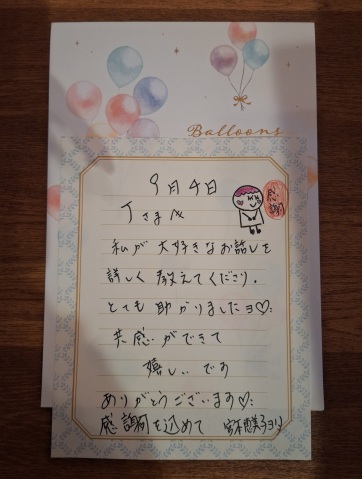 Balloons
9月4日
Tさまへ
感謝
私が大好きなお話しを
詳しく教えてくださり、
とても助かりましたヨ♡
共感ができて
嬉しいです
ありがとうございます♡
感謝を込めて 恵美子ヨリ